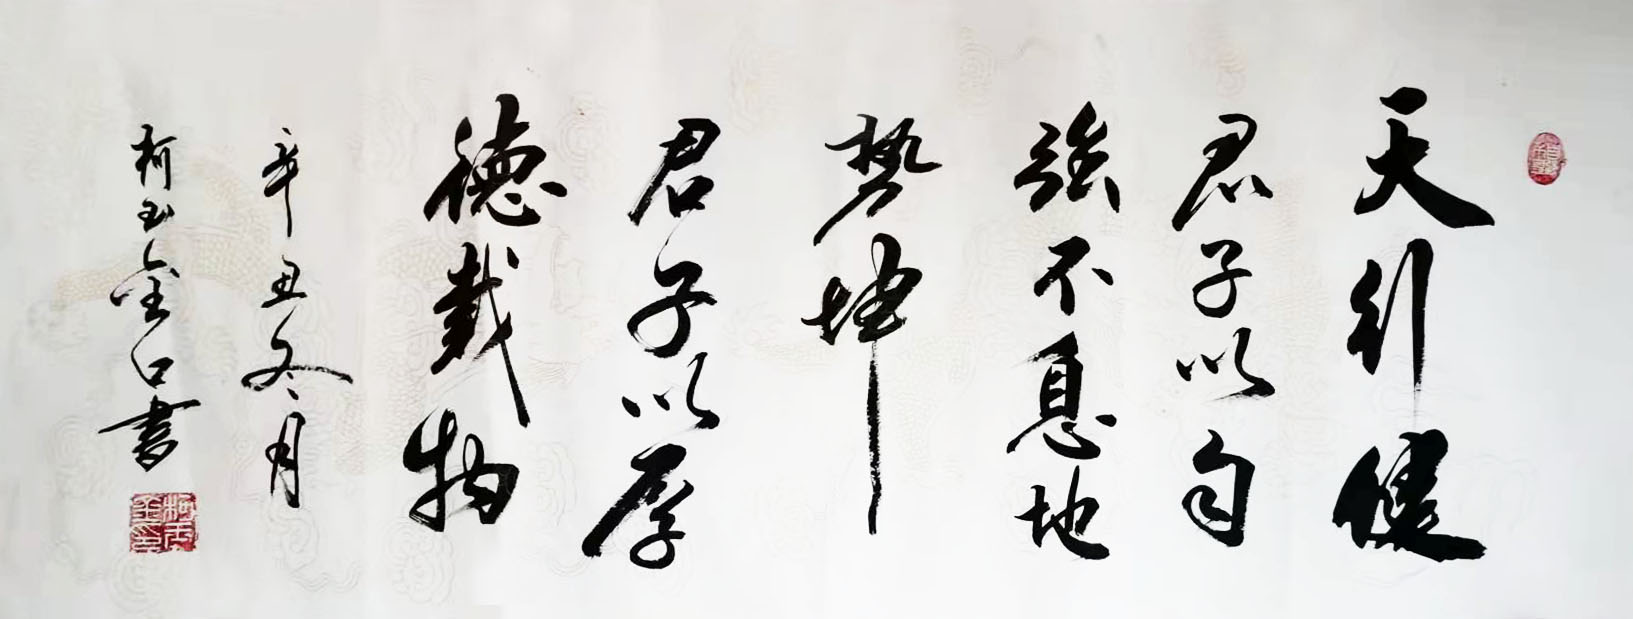 天行健
君子以自
強不息地
勢坤
君子以厚
德載物
辛丑冬月
柯玉金口書